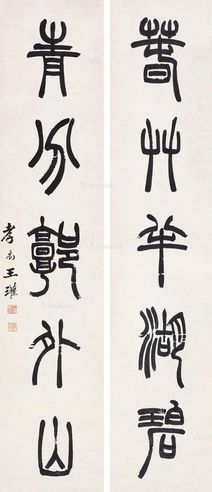 春艸半湖碧
青分郭外山
孝禹王瓘